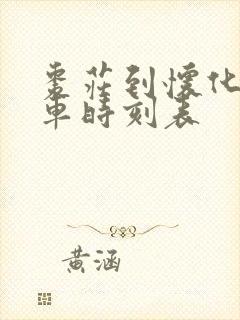 枣庄到懷化
車時刻表
黄涵